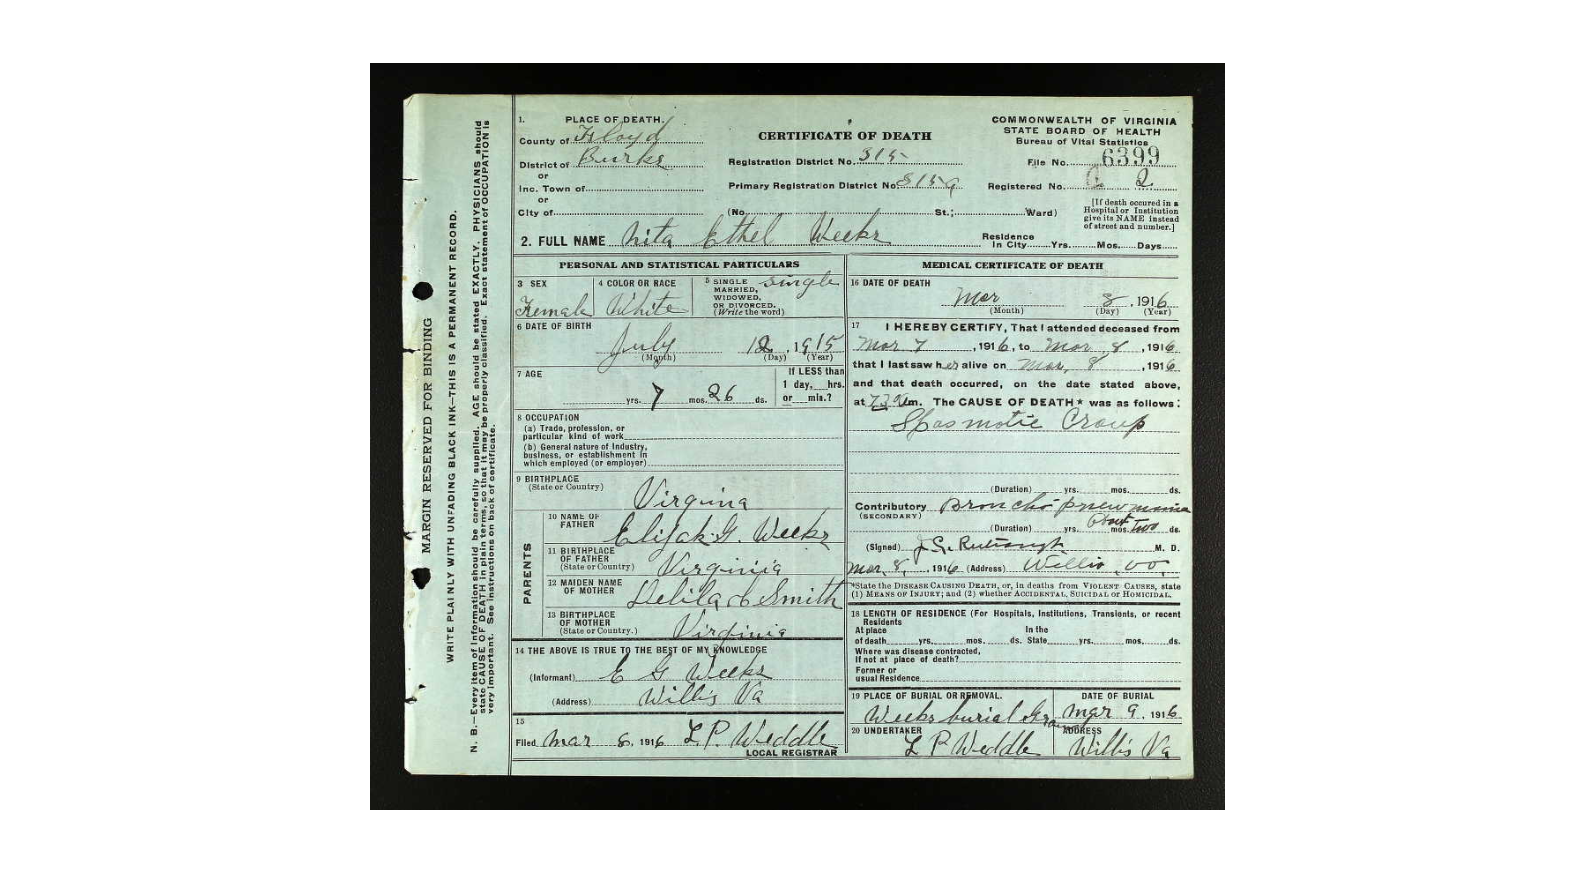 1. PLACE OF DEATH.
County of Floyd
District of Burks
or
Inc. Town of
or
City of
CERTIFICATE OF DEATH
Registration District No. 315
Primary Registration District No. 315a
(No. St.; Ward)
COMMONWEALTH OF VIRGINIA
STATE BOARD OF HEALTH
Bureau of Vital Statistics
File No. 6399
Registered No. 2
[If death occured in a
Hospital or Institution
give its NAME instead
of street and number.]
2. FULL NAME Nita Ethel Weeks
Residence
In City Yrs. Mos. Days
PERSONAL AND STATISTICAL PARTICULARS
3 SEX
Female
4 COLOR OR RACE
White
5 SINGLE
MARRIED,
WIDOWED,
OR DIVORCED.
(Write the word)
Single
6 DATE OF BIRTH
July 12, 1915
(Month) (Day) (Year)
7 AGE
yrs. 7 mos. 26 ds.
If LESS than
1 day, hrs.
or min.?
8 OCCUPATION
(a) Trade, profession, or
particular kind of work
(b) General nature of Industry,
business, or establishment in
which employed (or employer)
9 BIRTHPLACE
(State or Country)
Virginia
PARENTS
10 NAME OF
FATHER
Elijah G. Weeks
11 BIRTHPLACE
OF FATHER
(State or Country)
Virginia
12 MAIDEN NAME
OF MOTHER
Delila Smith
13 BIRTHPLACE
OF MOTHER
(State or Country.)
Virginia
14 THE ABOVE IS TRUE TO THE BEST OF MY KNOWLEDGE
(Informant) E G Weeks
(Address) Willis Va
15
Filed Mar 8, 1916 L.P. Weddle
LOCAL REGISTRAR
MEDICAL CERTIFICATE OF DEATH
16 DATE OF DEATH
Mar 8, 1916
(Month) (Day) (Year)
17 I HEREBY CERTIFY, That I attended deceased from
Mar 7, 1916, to Mar 8, 1916
that I last saw her alive on Mar, 8, 1916
and that death occurred, on the date stated above,
at m. The CAUSE OF DEATH* was as follows:
Spasmotic Croup
(Duration) yrs. mos. ds.
Contributory Broncho pneumonia
(SECONDARY)
(Duration) yrs. mos. about two ds.
(Signed) J.G. M. D.
Mar, 8, 1916 (Address) Willis
*State the DISEASE CAUSING DEATH, or, in deaths from VIOLENT CAUSES, state
(1) MEANS OF INJURY; and (2) whether ACCIDENTAL, SUICIDAL or HOMICIDAL.
18 LENGTH OF RESIDENCE (For Hospitals, Institutions, Transients, or recent
Residents
At place In the
of death yrs. mos. ds. State yrs. mos. ds.
Where was disease contracted,
if not at place of death?
Former or
usual Residence
19 PLACE OF BURIAL OR REMOVAL.
Weeks burial Ground
DATE OF BURIAL
Mar 9, 1916
20 UNDERTAKER
L P Weddle
ADDRESS
Willis Va
MARGIN RESERVED FOR BINDING
WRITE PLAINLY WITH UNFADING BLACK INK—THIS IS A PERMANENT RECORD.
N. B.—Every item of information should be carefully supplied. AGE should be stated EXACTLY. PHYSICIANS should
state CAUSE OF DEATH in plain terms, so that it may be properly classified. Exact statement of OCCUPATION is
very important. See instructions on back of certificate.